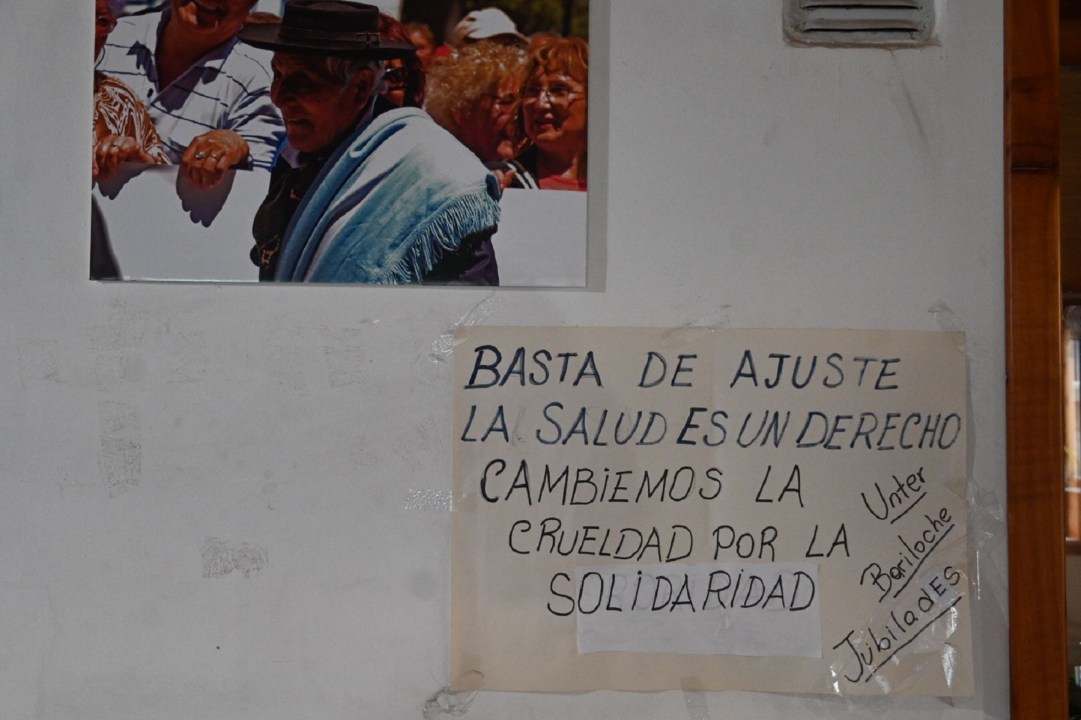 BASTA DE AJUSTE
LA SALUD ES UN DERECHO
CAMBiEMOS LA
CRUELDAD POR LA
SOLiDARiDAD
Unter
Bariloche
JubiladES